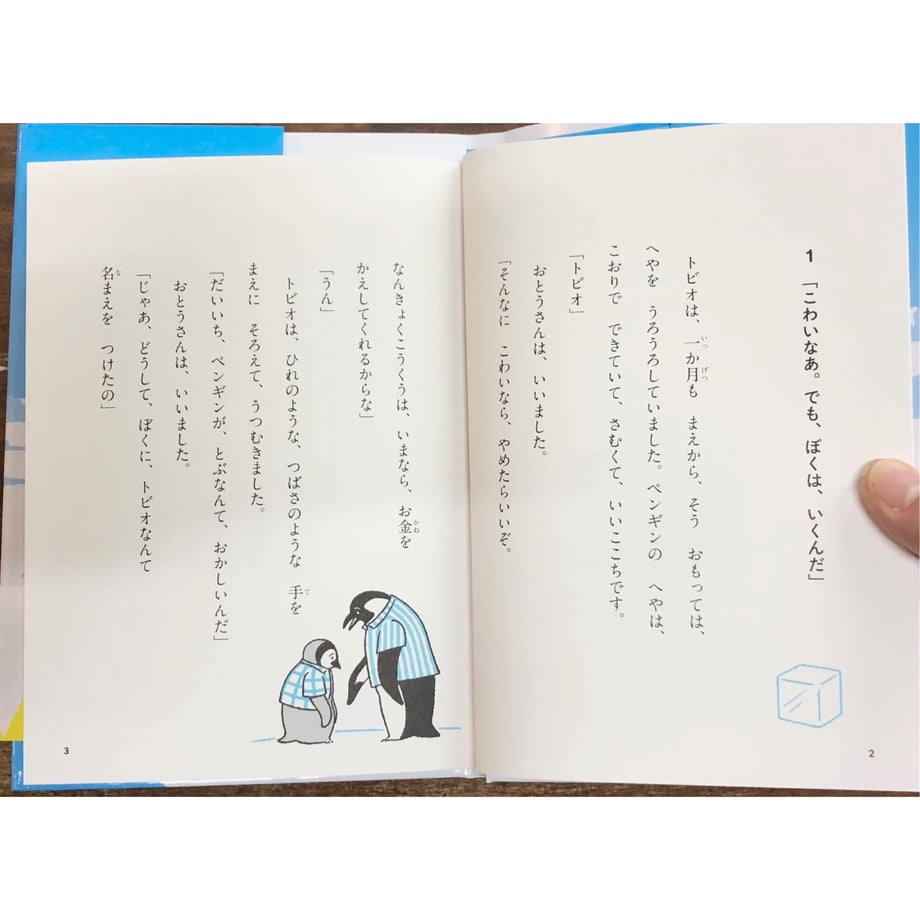 1 「こわいなあ。でも、ぼくは、いくんだ」
トビオは、一か月も まえから、そう おもっては、
へやを うろうろしていました。ペンギンの へやは、
こおりで できていて、さむくて、いいここちです。
「トビオ」
おとうさんは、いいました。
「そんなに こわいなら、やめたらいいぞ。
2
なんきょくこうくうは、いまなら、お金を
かえしてくれるからな」
「うん」
トビオは、ひれのような、つばさのような 手を
まえに そろえて、うつむきました。
「だいいち、ペンギンが、とぶなんて、おかしいんだ」
おとうさんは、いいました。
「じゃあ、どうして、ぼくに、トビオなんて
名まえを つけたの」
3